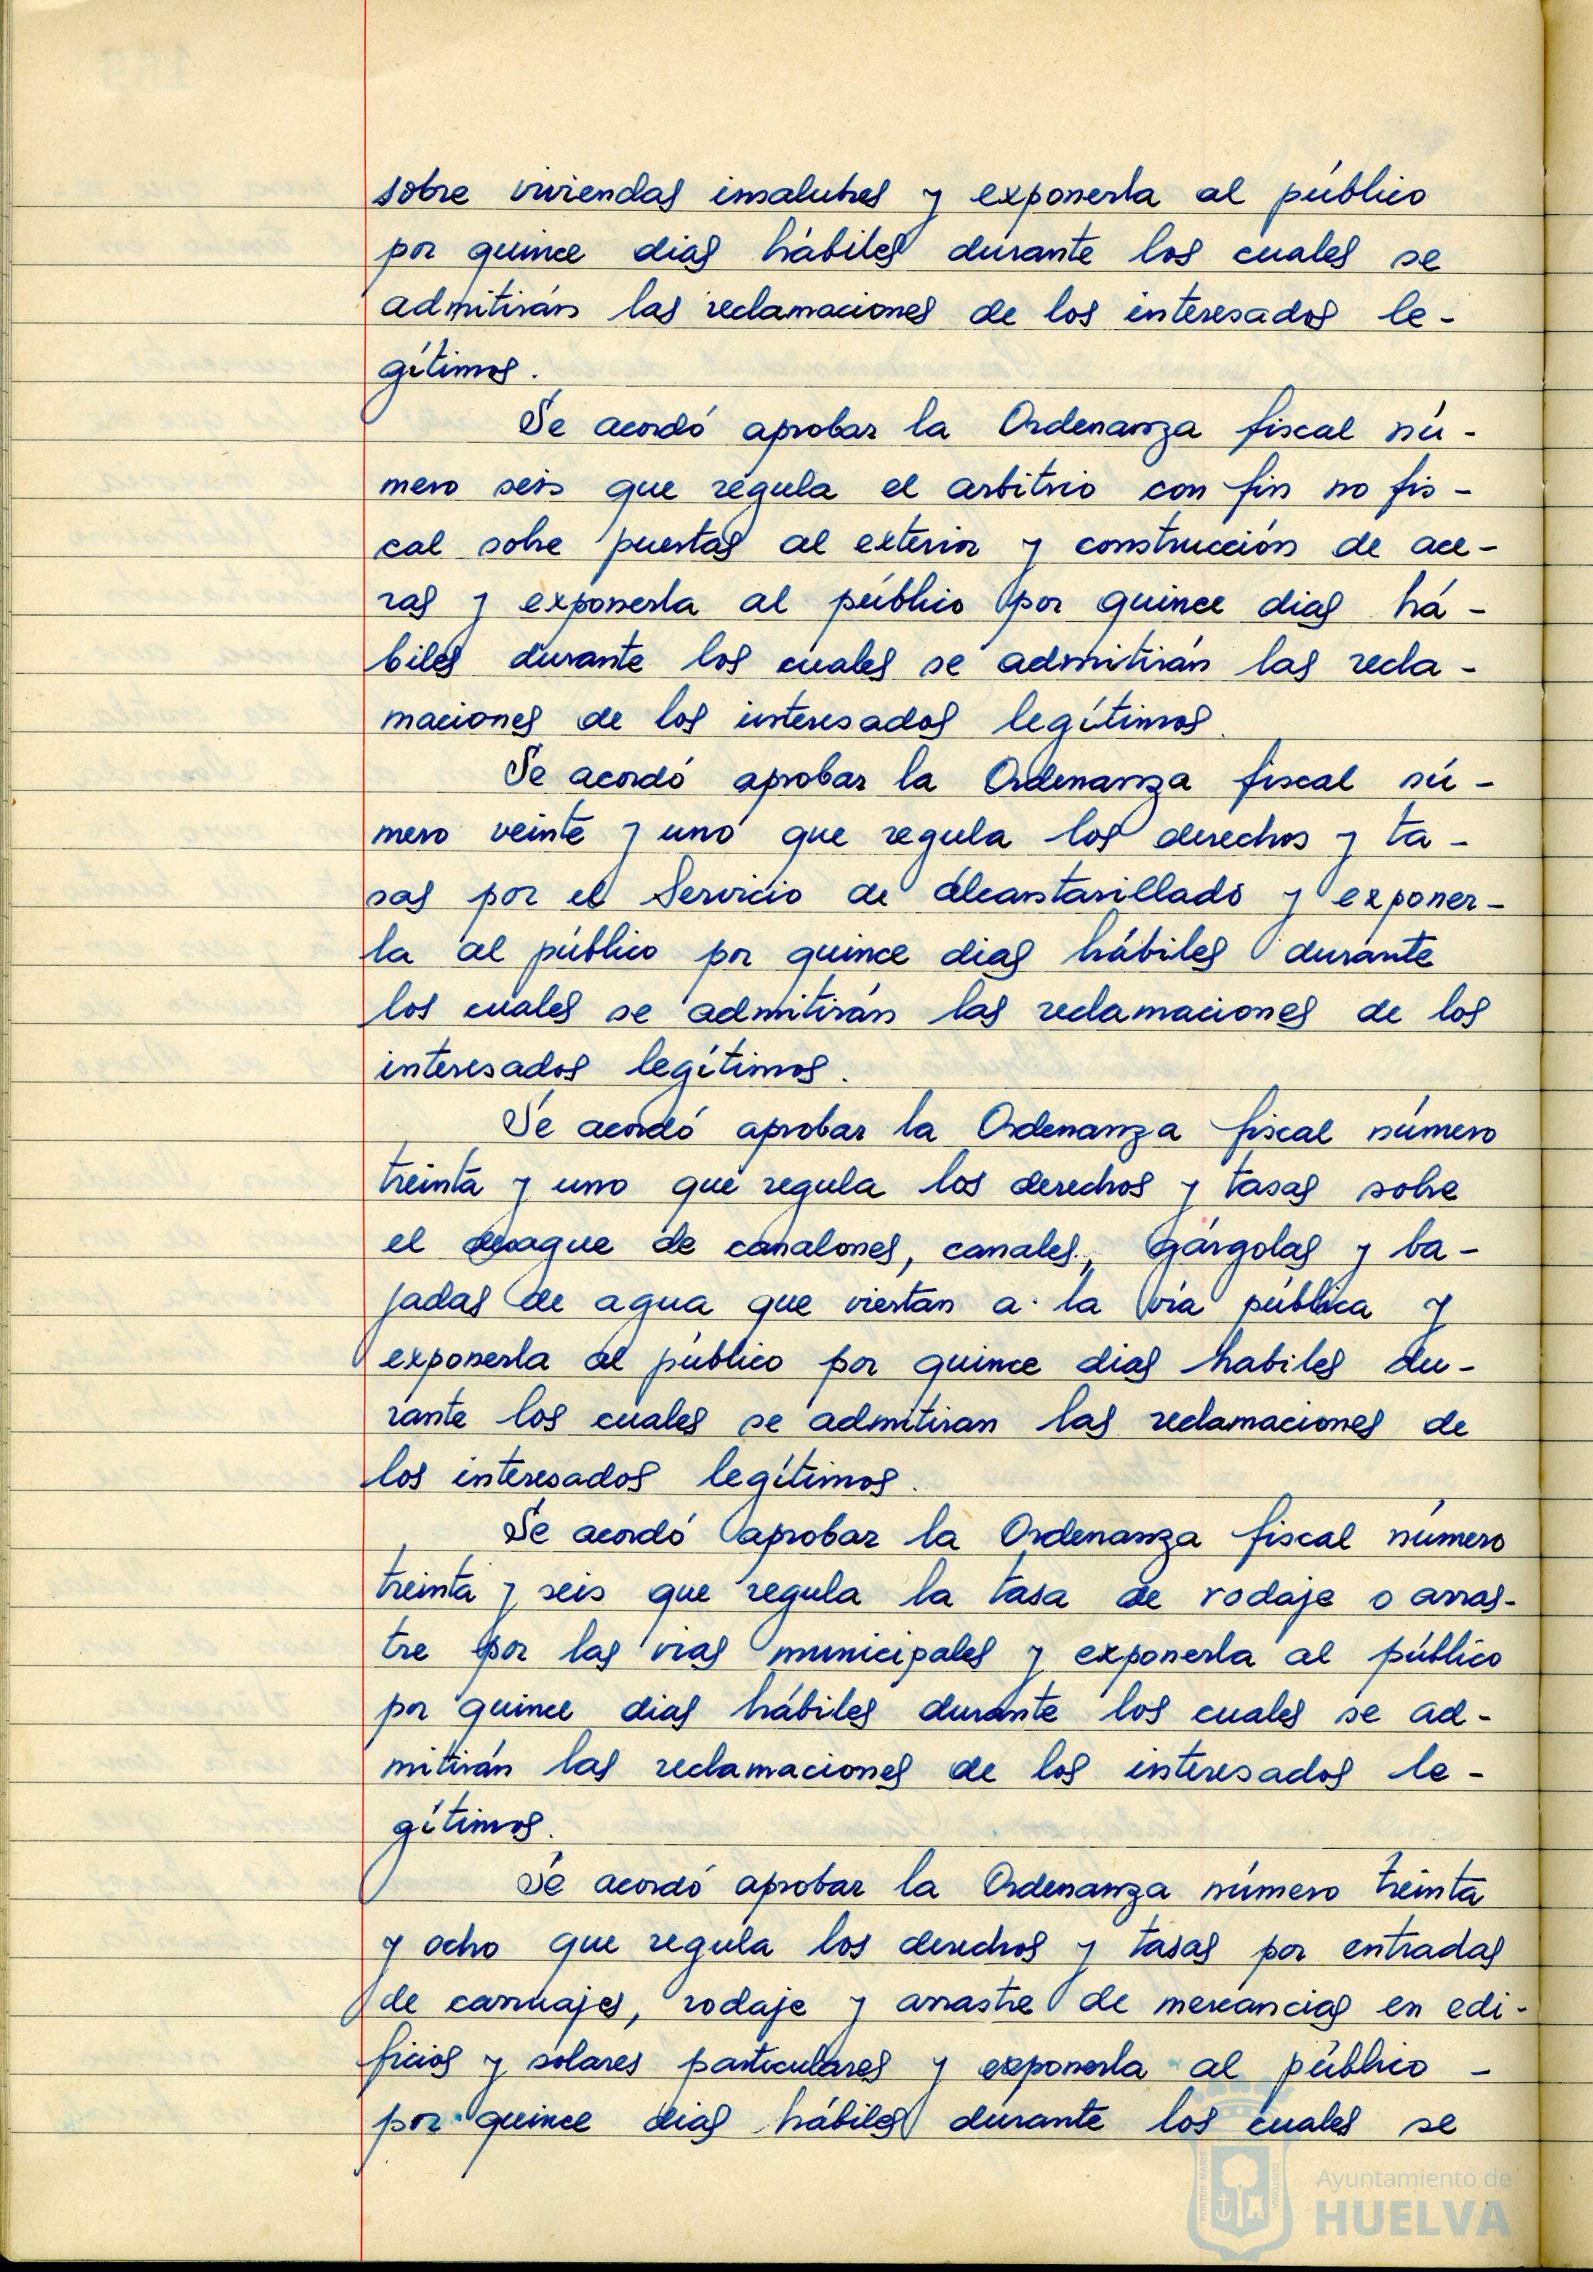 sobre viviendas insalubres y exponerla al público
por quince dias hábiles durante los cuales se
admitirán las reclamaciones de los interesados le-
gítimos.
Se acordó aprobar la Ordenanza fiscal nú-
mero seis que regula el arbitrio con fin no fis-
cal sobre puertas al exterior y construcción de ace-
ras y exponerla al público por quince dias há-
biles durante los cuales se admitirán las recla-
maciones de los interesados legítimos.
Se acordó aprobar la Ordenanza fiscal nú-
mero veinte y uno que regula los derechos y ta-
sas por el Servicio de alcantarillado y exponer-
la al público por quince dias hábiles durante
los cuales se admitirán las reclamaciones de los
interesados legítimos.
Se acordó aprobar la Ordenanza fiscal número
treinta y uno que regula los derechos y tasas sobre
el desague de canalones, canales, gárgolas y ba-
jadas de agua que viertan a la vía pública y
exponerla al público por quince dias habiles du-
rante los cuales se admitiran las reclamaciones de
los interesados legítimos.
Se acordó aprobar la Ordenanza fiscal número
treinta y seis que regula la tasa de rodaje o arras-
tre por las vias municipales y exponerla al público
por quince dias hábiles durante los cuales se ad-
mitirán las reclamaciones de los interesados le-
gítimos.
Se acordó aprobar la Ordenanza número treinta
y ocho que regula los derechos y tasas por entradas
de carruajes, rodaje y arrastre de mercancias en edi-
ficios y solares particulares y exponerla al público -
por quince dias hábiles durante los cuales se
PORTUS MARIS
CUSTODIA
Ayuntamiento de
HUELVA